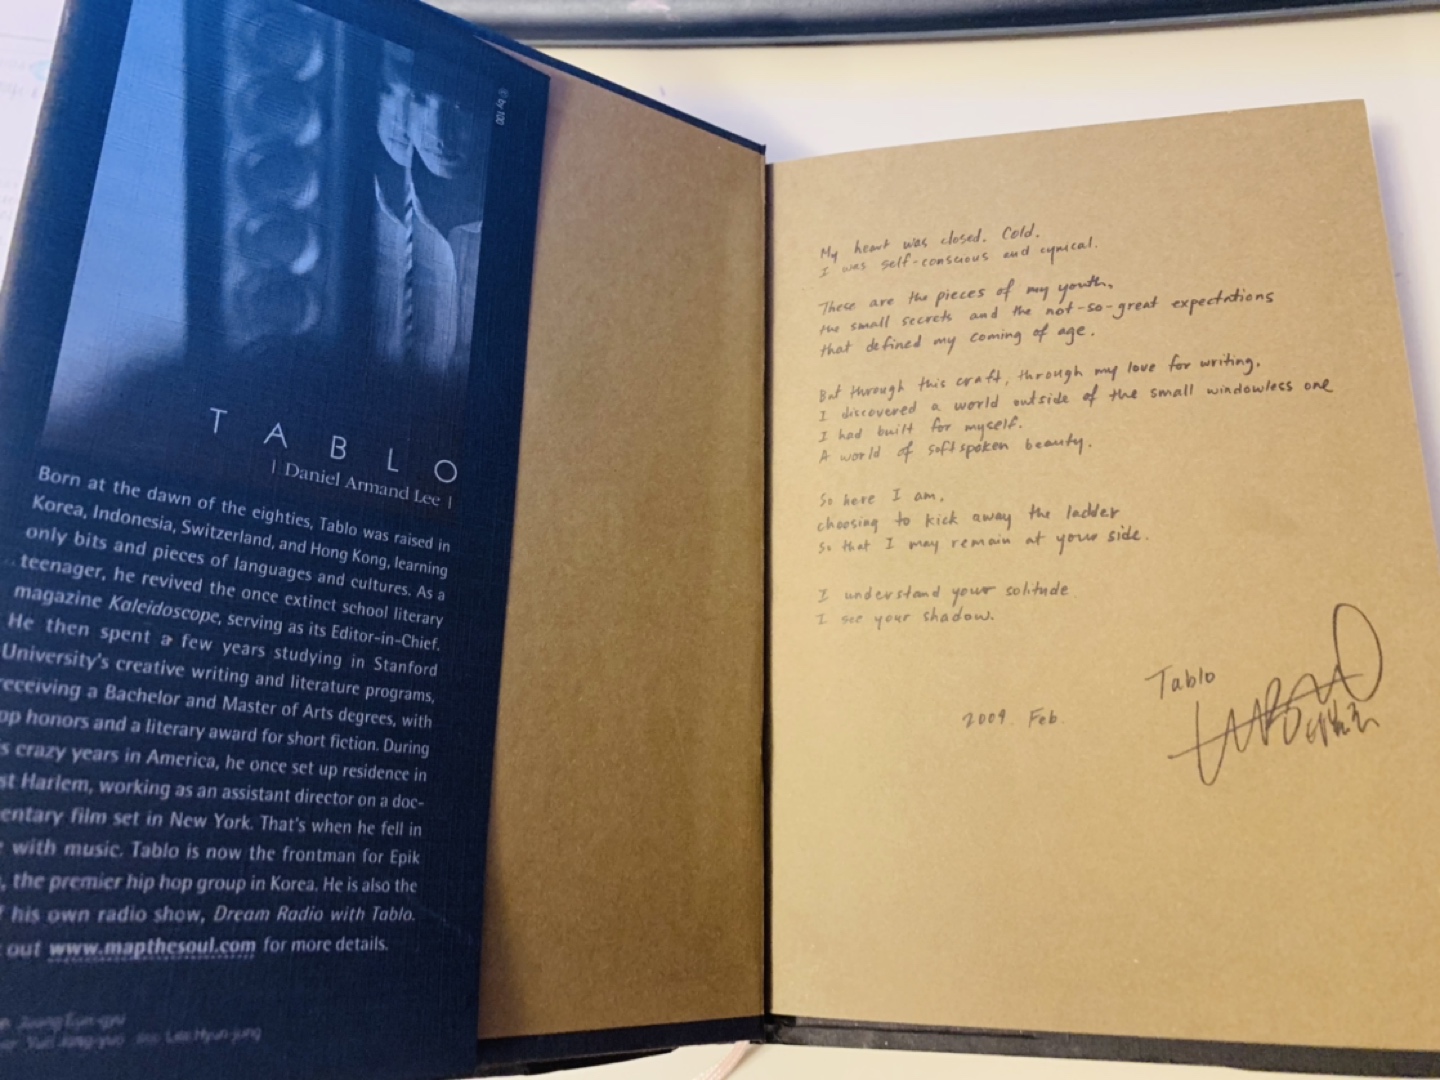 by 100
TABLO
| Daniel Armand Lee |
Born at the dawn of the eighties, Tablo was raised in
Korea, Indonesia, Switzerland, and Hong Kong, learning
only bits and pieces of languages and cultures. As a
teenager, he revived the once extinct school literary
magazine Kaleidoscope, serving as its Editor-in-Chief.
He then spent a few years studying in Stanford
University's creative writing and literature programs,
receiving a Bachelor and Master of Arts degrees, with
op honors and a literary award for short fiction. During
s crazy years in America, he once set up residence in
st Harlem, working as an assistant director on a doc-
entary film set in New York. That's when he fell in
with music. Tablo is now the frontman for Epik
, the premier hip hop group in Korea. He is also the
his own radio show, Dream Radio with Tablo.
out www.mapthesoul.com for more details.
Lee Hyun-jung
My heart was closed. Cold.
I was self-conscious and cynical.
These are the pieces of my youth,
the small secrets and the not-so-great expectations
that defined my coming of age.
But through this craft, through my love for writing,
I discovered a world outside of the small windowless one
I had built for myself.
A world of softspoken beauty.
So here I am,
choosing to kick away the ladder
So that I may remain at your side.
I understand your solitude
I see your shadow.
Tablo
2009. Feb.